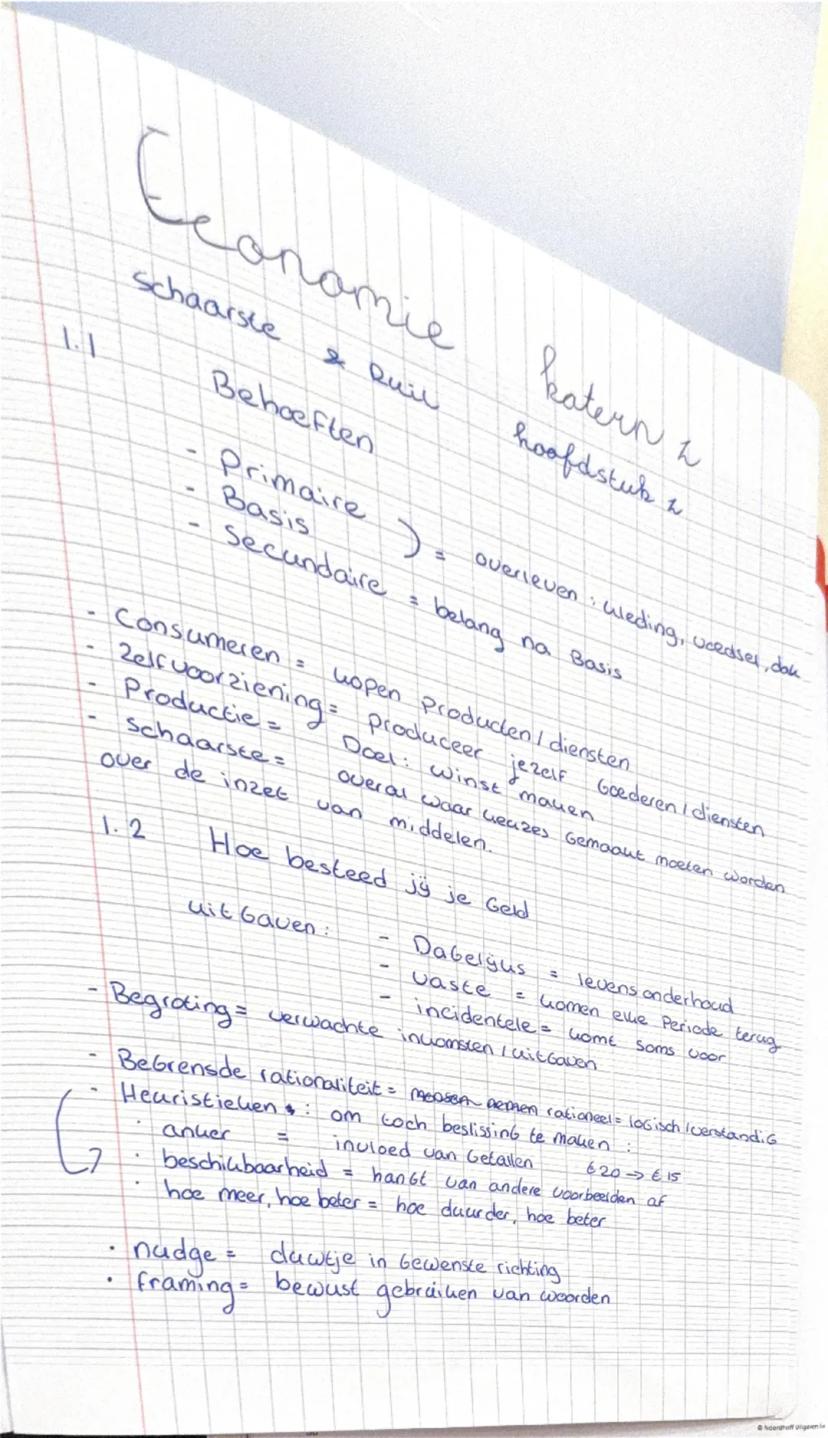 Economie katern 2
Schaarste & Ruil hoofdstuk 2
1.1 Behoeften
- Primaire
- Basis ) = overleven: kleding, voedsel, dak
- Secundaire = belang na Basis
- Consumeren = kopen producten / diensten
- Zelfvoorziening = produceer jezelf Goederen / diensten
- Productie = Doel: winst maken
- Schaarste = overal waar keuzes Gemaakt moeten worden
over de inzet van middelen.
1.2 Hoe besteed jij je Geld
uitGaven: - DaGelijks = levensonderhoud
- vaste = komen elke Periode terug
- incidentele = komt soms voor
- Begroting = verwachte inkomsten / uitGaven
- BeGrensde rationaliteit = rationeel = loGisch / verstandiG
- Heuristieken : om toch beslissing te maken :
· anker = invloed van Getallen €20 → €15
· beschikbaarheid = hanGt van andere voorbeelden af
· hoe meer, hoe beter = hoe duurder, hoe beter
· nudge = duwtje in Gewenste richting
· framing = bewust gebruiken van woorden
© Noordhoff Uitgevers bv